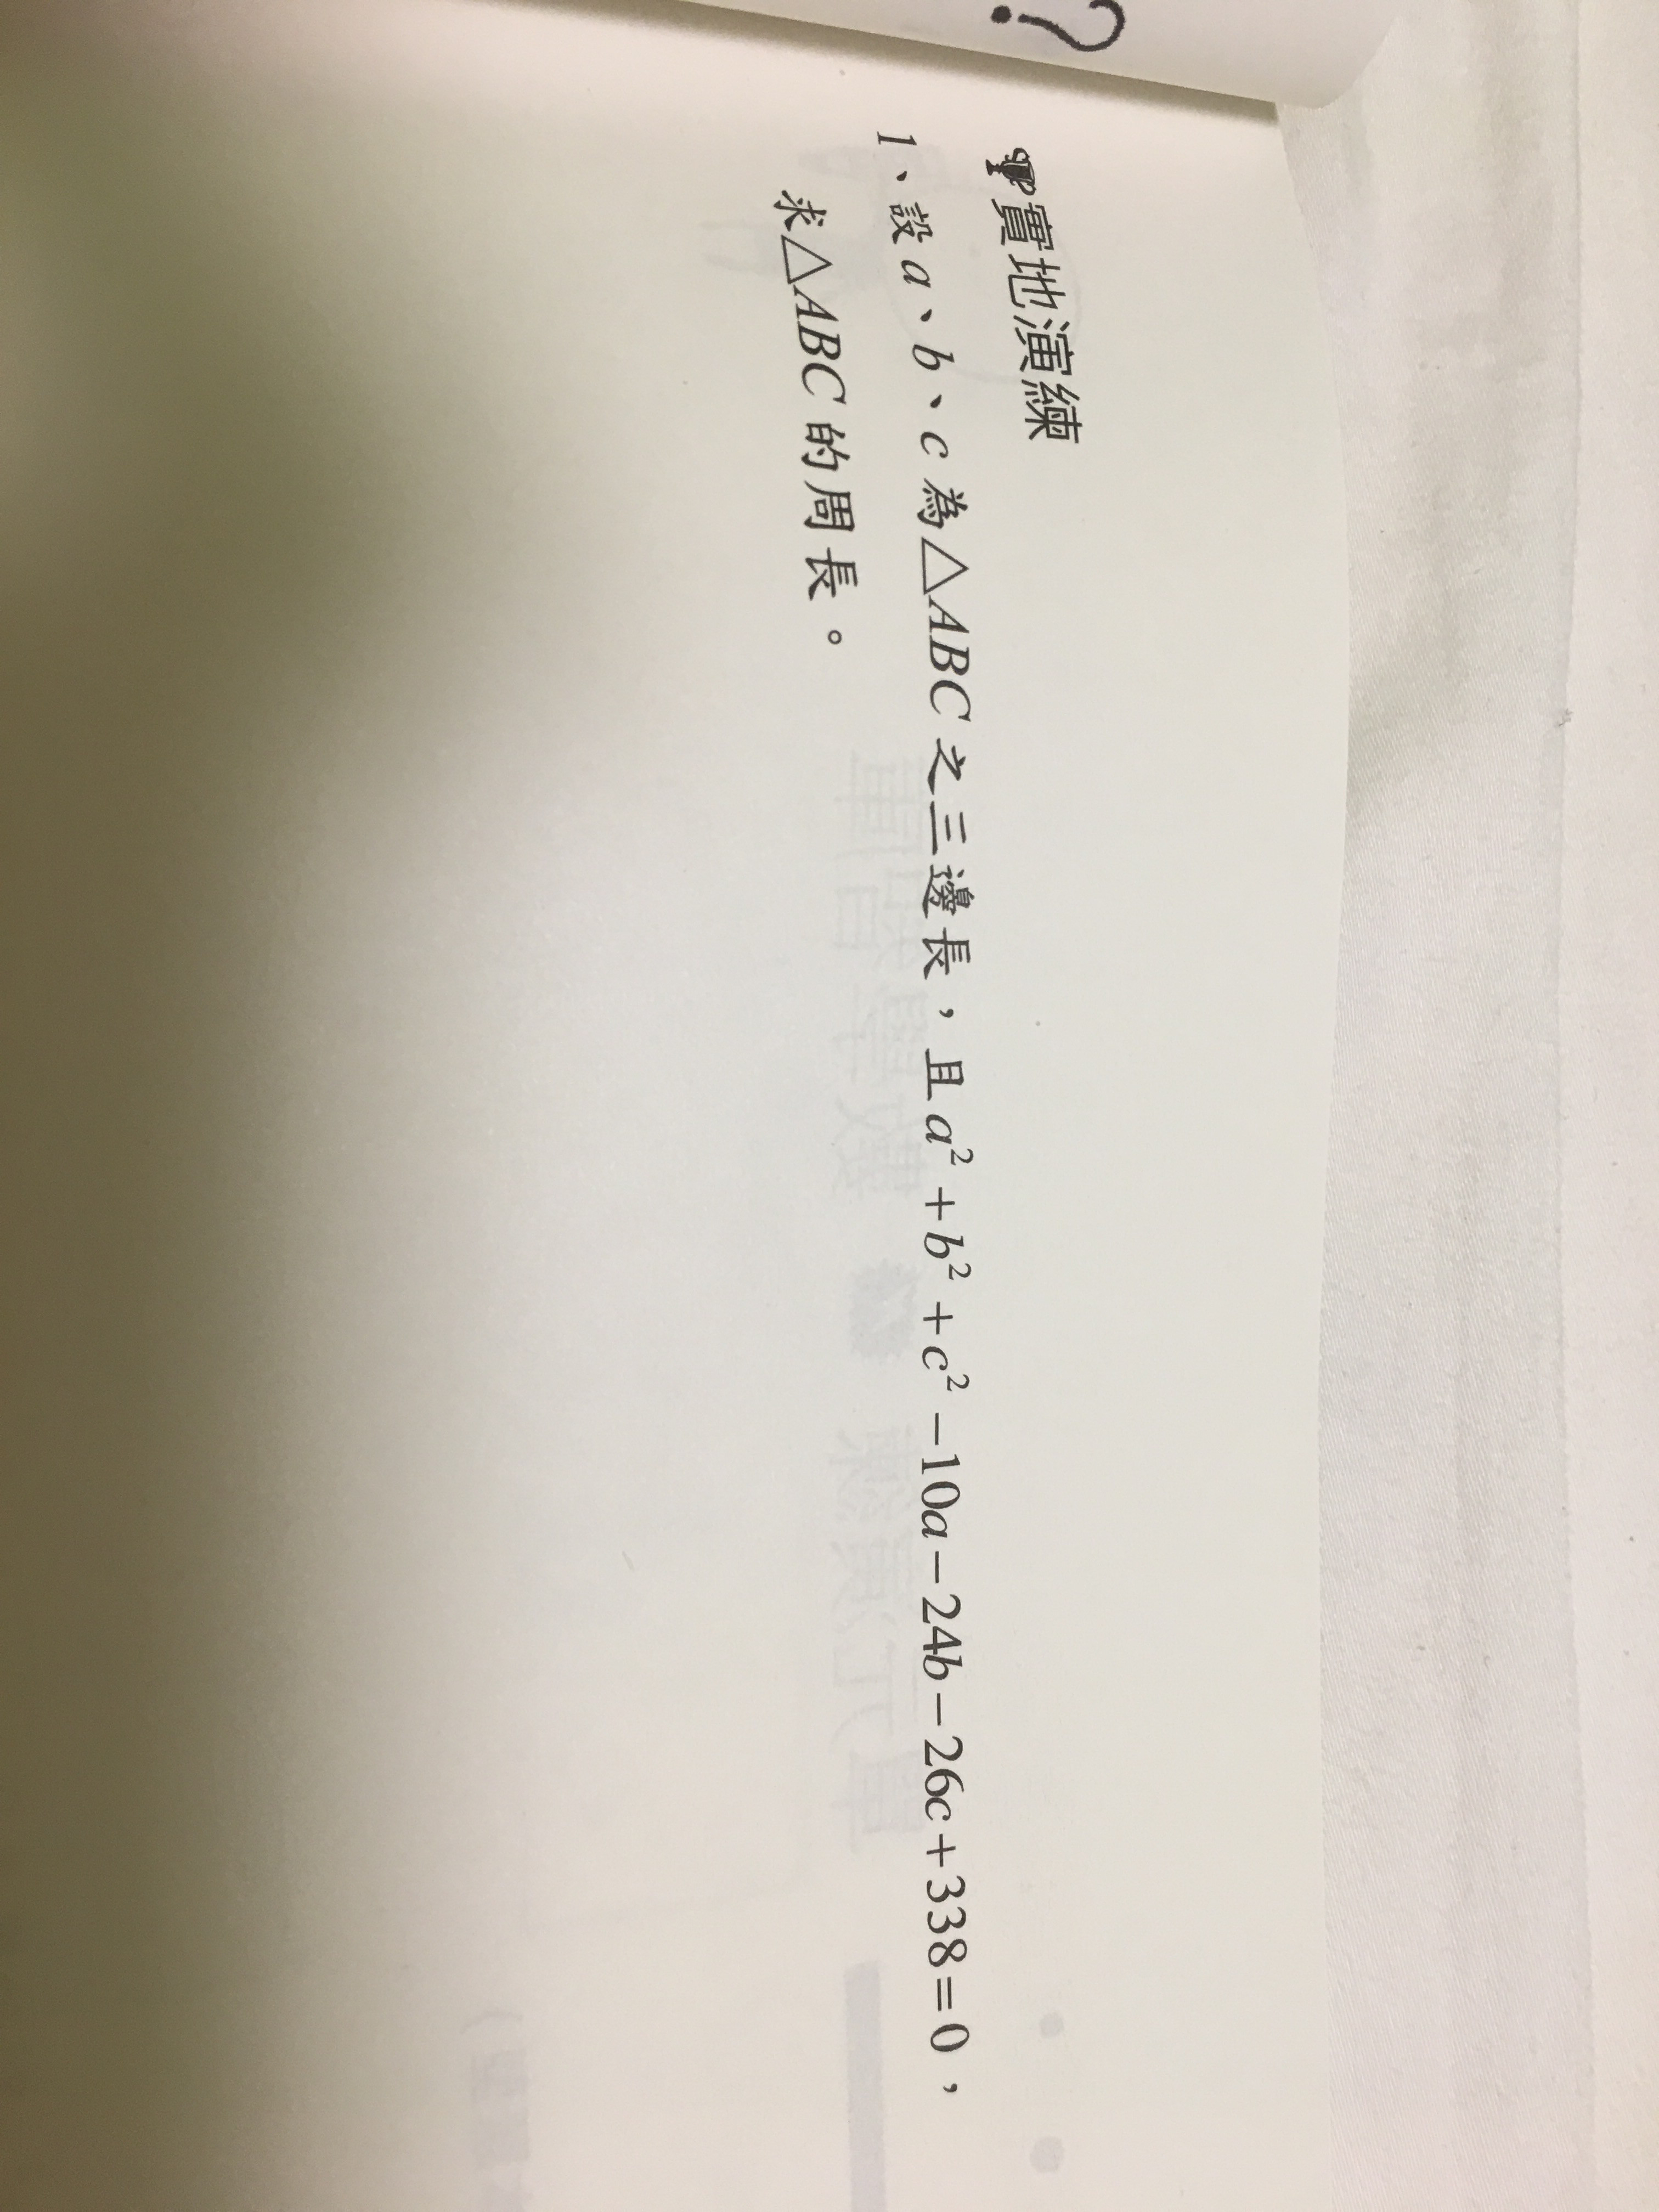 ?
實地演練
1、設 a、b、c 為△ABC 之三邊長，且 a²+b²+c²−10a−24b−26c+338=0，
求△ABC 的周長。